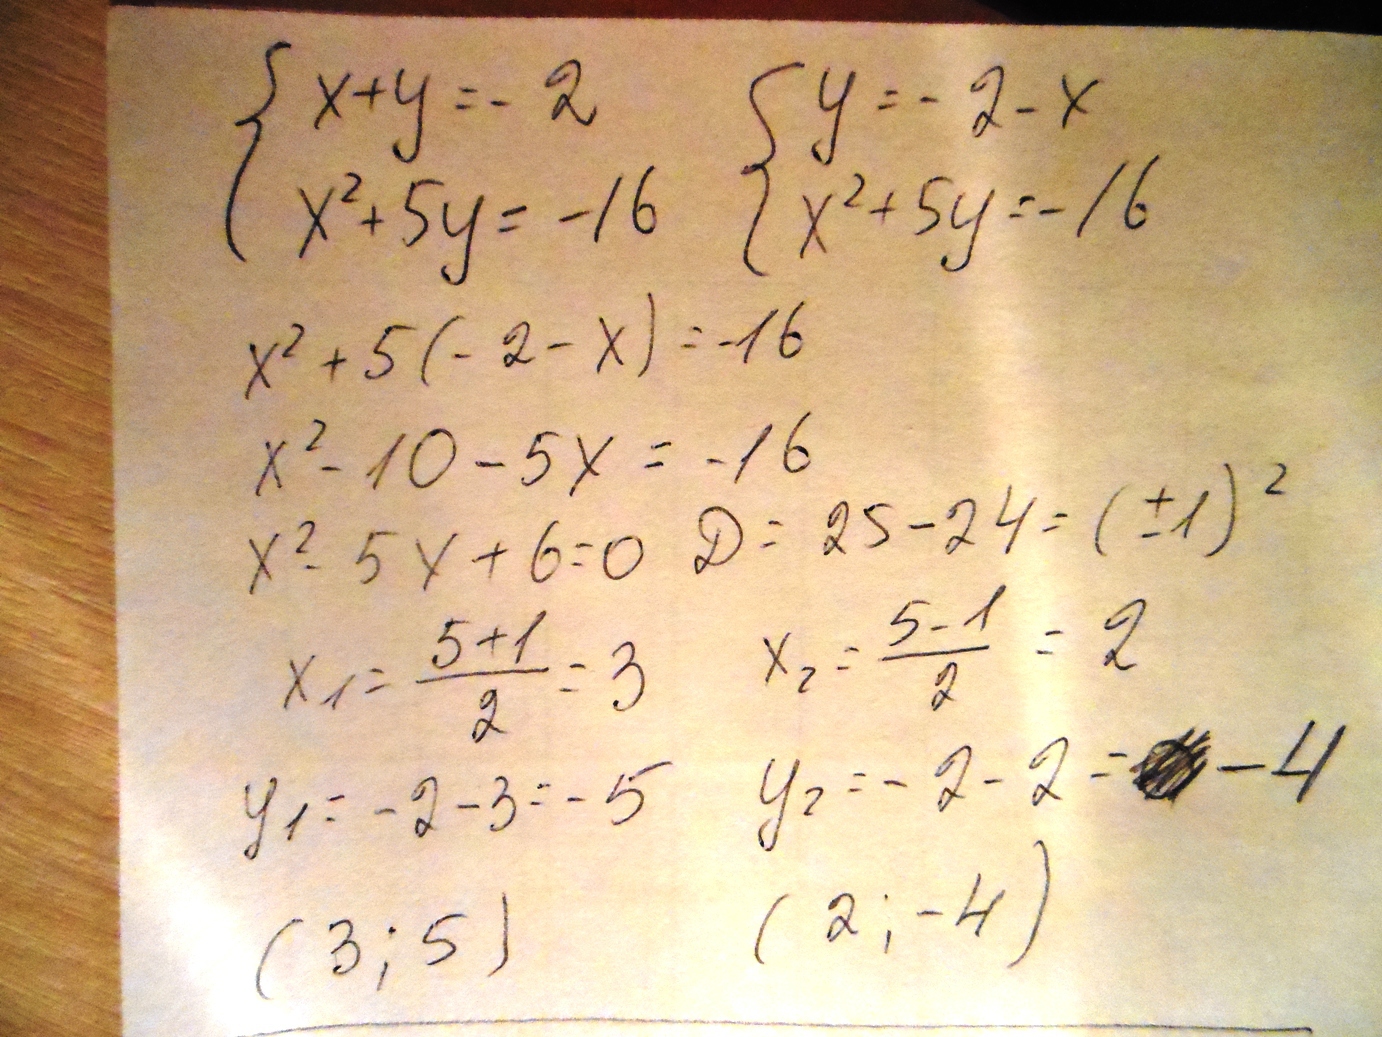 { x+y=-2 { y=-2-x
x²+5y=-16 x²+5y=-16
x²+5(-2-x)=-16
x²-10-5x=-16
x²-5x+6=0 D=25-24=(±1)²
x₁=(5+1)/2=3 x₂=(5-1)/2=2
y₁=-2-3=-5 y₂=-2-2=-4
(3;5) (2;-4)